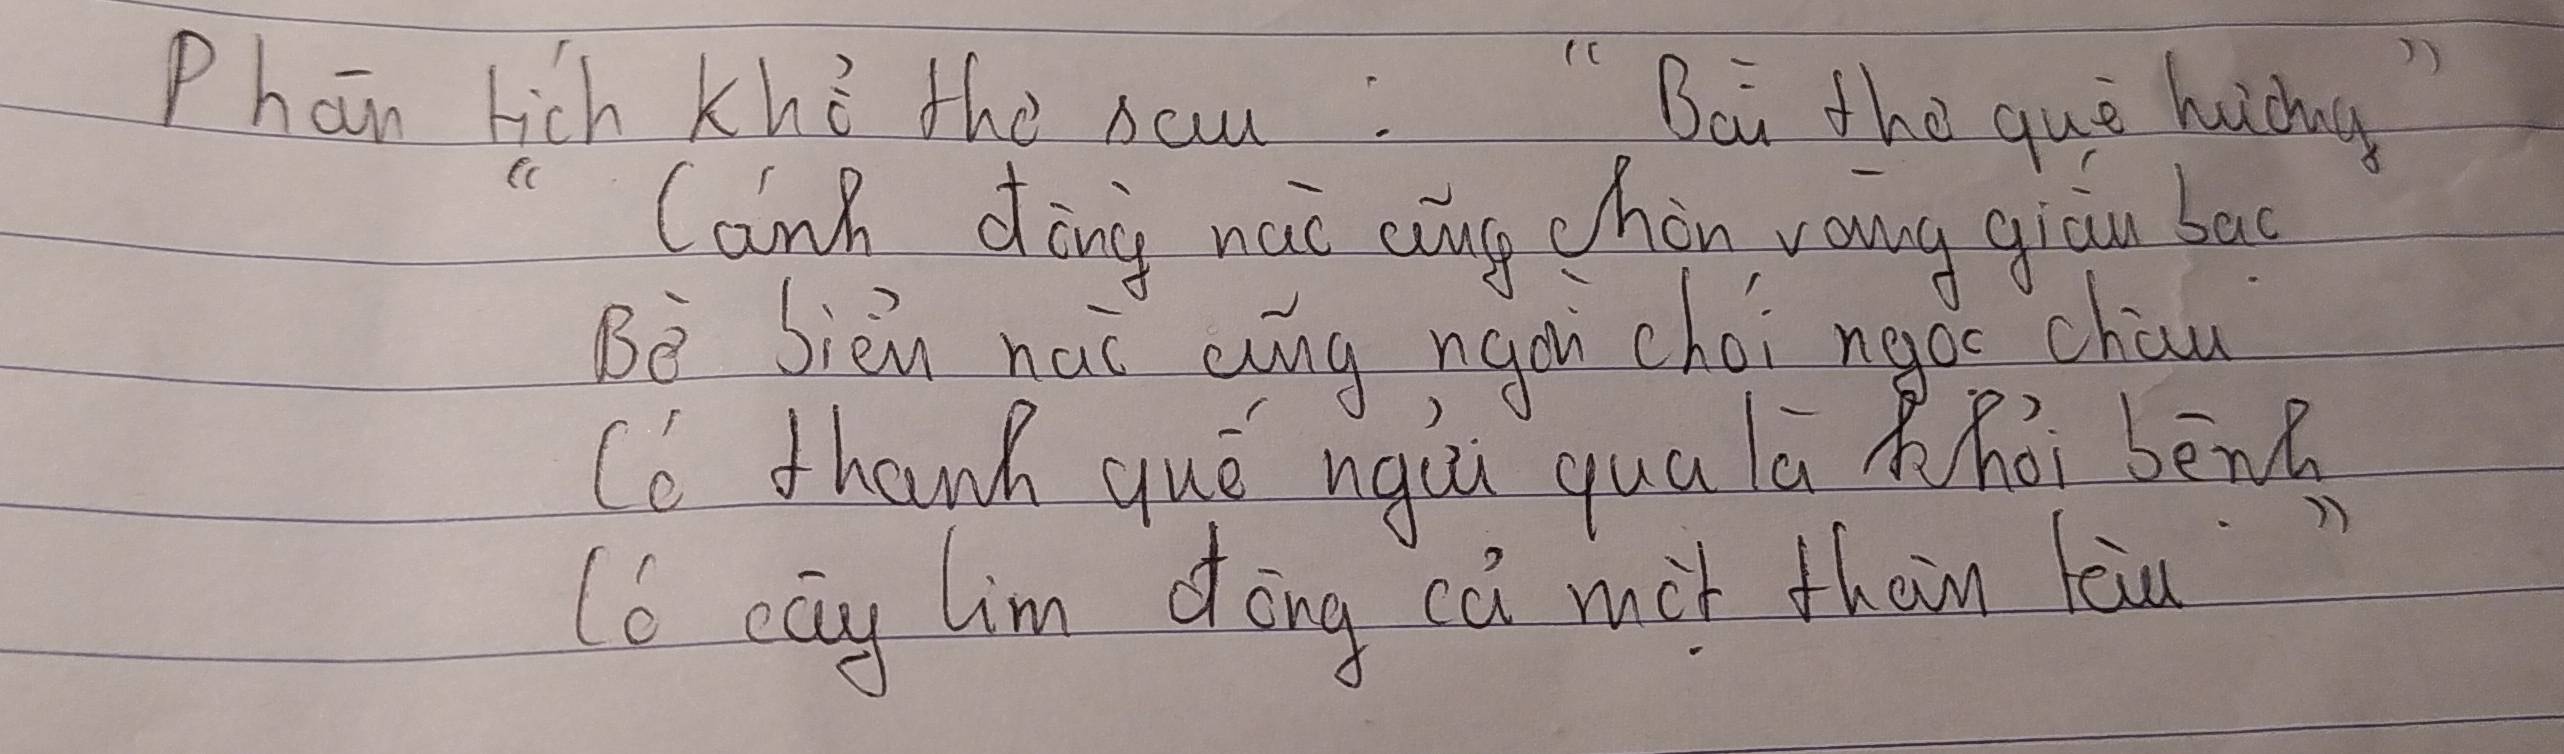 Phân tích khổ thơ sau : “ Bài thơ quê hương ”
“ Cánh đồng nào cũng chôn vàng giấu bạc
Bờ biển nào cũng ngời chói ngọc châu
Có thanh quế ngửi qua là khỏi bệnh
Có cây lim đóng cả một thân tàu ”